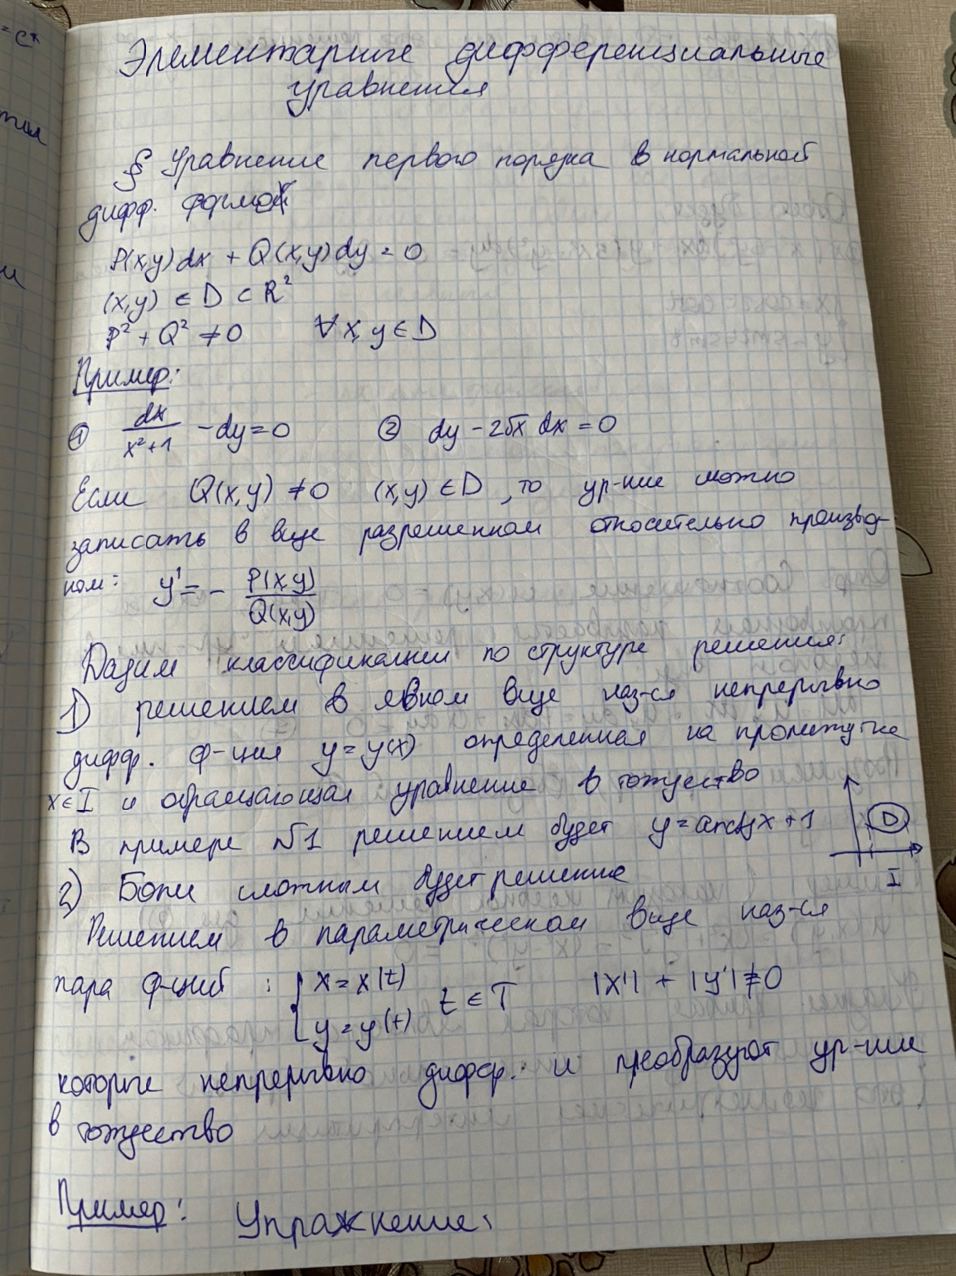 Элементарные дифференциальные
уравнения
§ Уравнение первого порядка в нормальной
дифф. форме
P(x,y)dx + Q(x,y)dy = 0
(x,y) ∈ D ⊂ R²
P² + Q² ≠ 0 ∀x,y ∈ D
Пример:
① dx/(x²+1) - dy = 0 ② dy - 2√x dx = 0
Если Q(x,y) ≠ 0 (x,y) ∈ D, то ур-ние можно
записать в виде разрешенном относительно производ-
ном: y' = - P(x,y)/Q(x,y)
Дадим классификации по структуре решения:
1) решением в явном виде наз-ся непрерывно
дифф. ф-ция y = y(x) определенная на промежутке
x ∈ I и обращающая уравнение в тожество
В примере №1 решением будет y = arctgx + 1
D
I
2) Более сложным будет решение
Решением в параметрическом виде наз-ся
пара ф-ций: { x = x(t)
y = y(t) t ∈ T |x'| + |y'| ≠ 0
которые непрерывно дифф. и преобразуют ур-ние
в тожество
Пример: Упражнение: